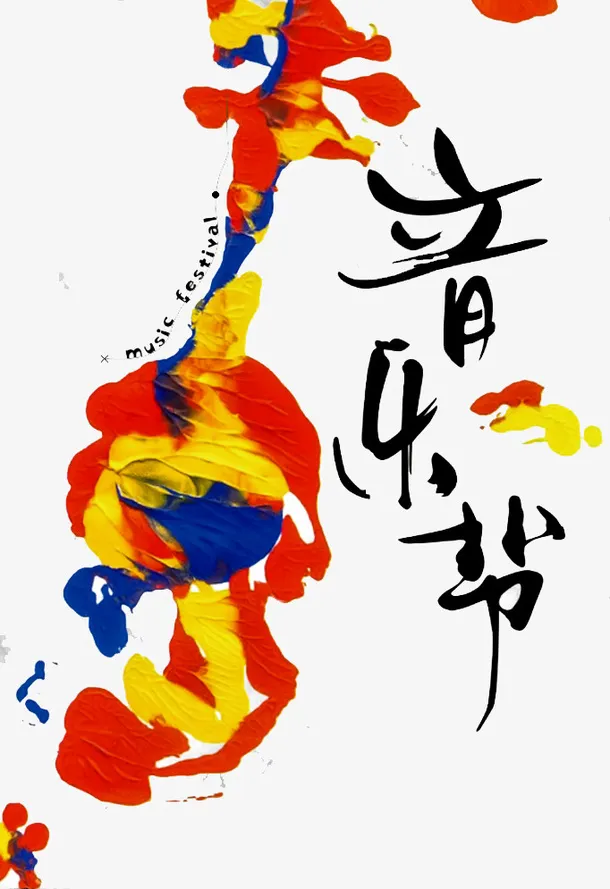 音乐节
music festival